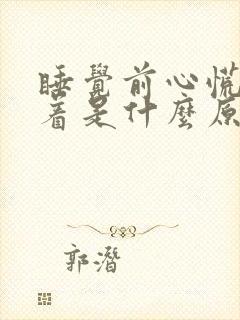 睡覺前心慌
着是什麼原
郭潛